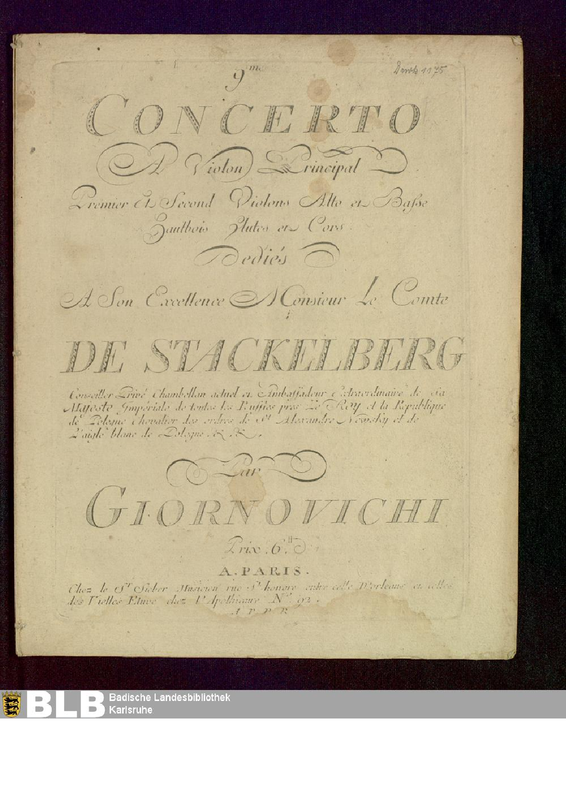 9.me
CONCERTO
A Violon Principal
Premier Et Second Violons Alto et Basse
Hautbois Flutes et Cors.
Dediés
A Son Excellence Monsieur Le Comte
DE STACKELBERG
Conseiller Privé Chambellan actuel et Ambassadeur Extraordinaire de Sa
Majesté Imperiale de toutes les Russies pres Le Roy et la Republique
de Pologne Chevalier des ordres de St Alexandre Newsky et de
l'aigle blanc de Pologne
Par
GIORNOVICHI
Prix 6.tt
A. PARIS.
Chez le Sr Sieber Musicien rue St honore entre celle D'orleans et celles
des Vielles Etuve chez l'Apothicaire No 92.
A. P. D. R.
BLB
Badische Landesbibliothek
Karlsruhe